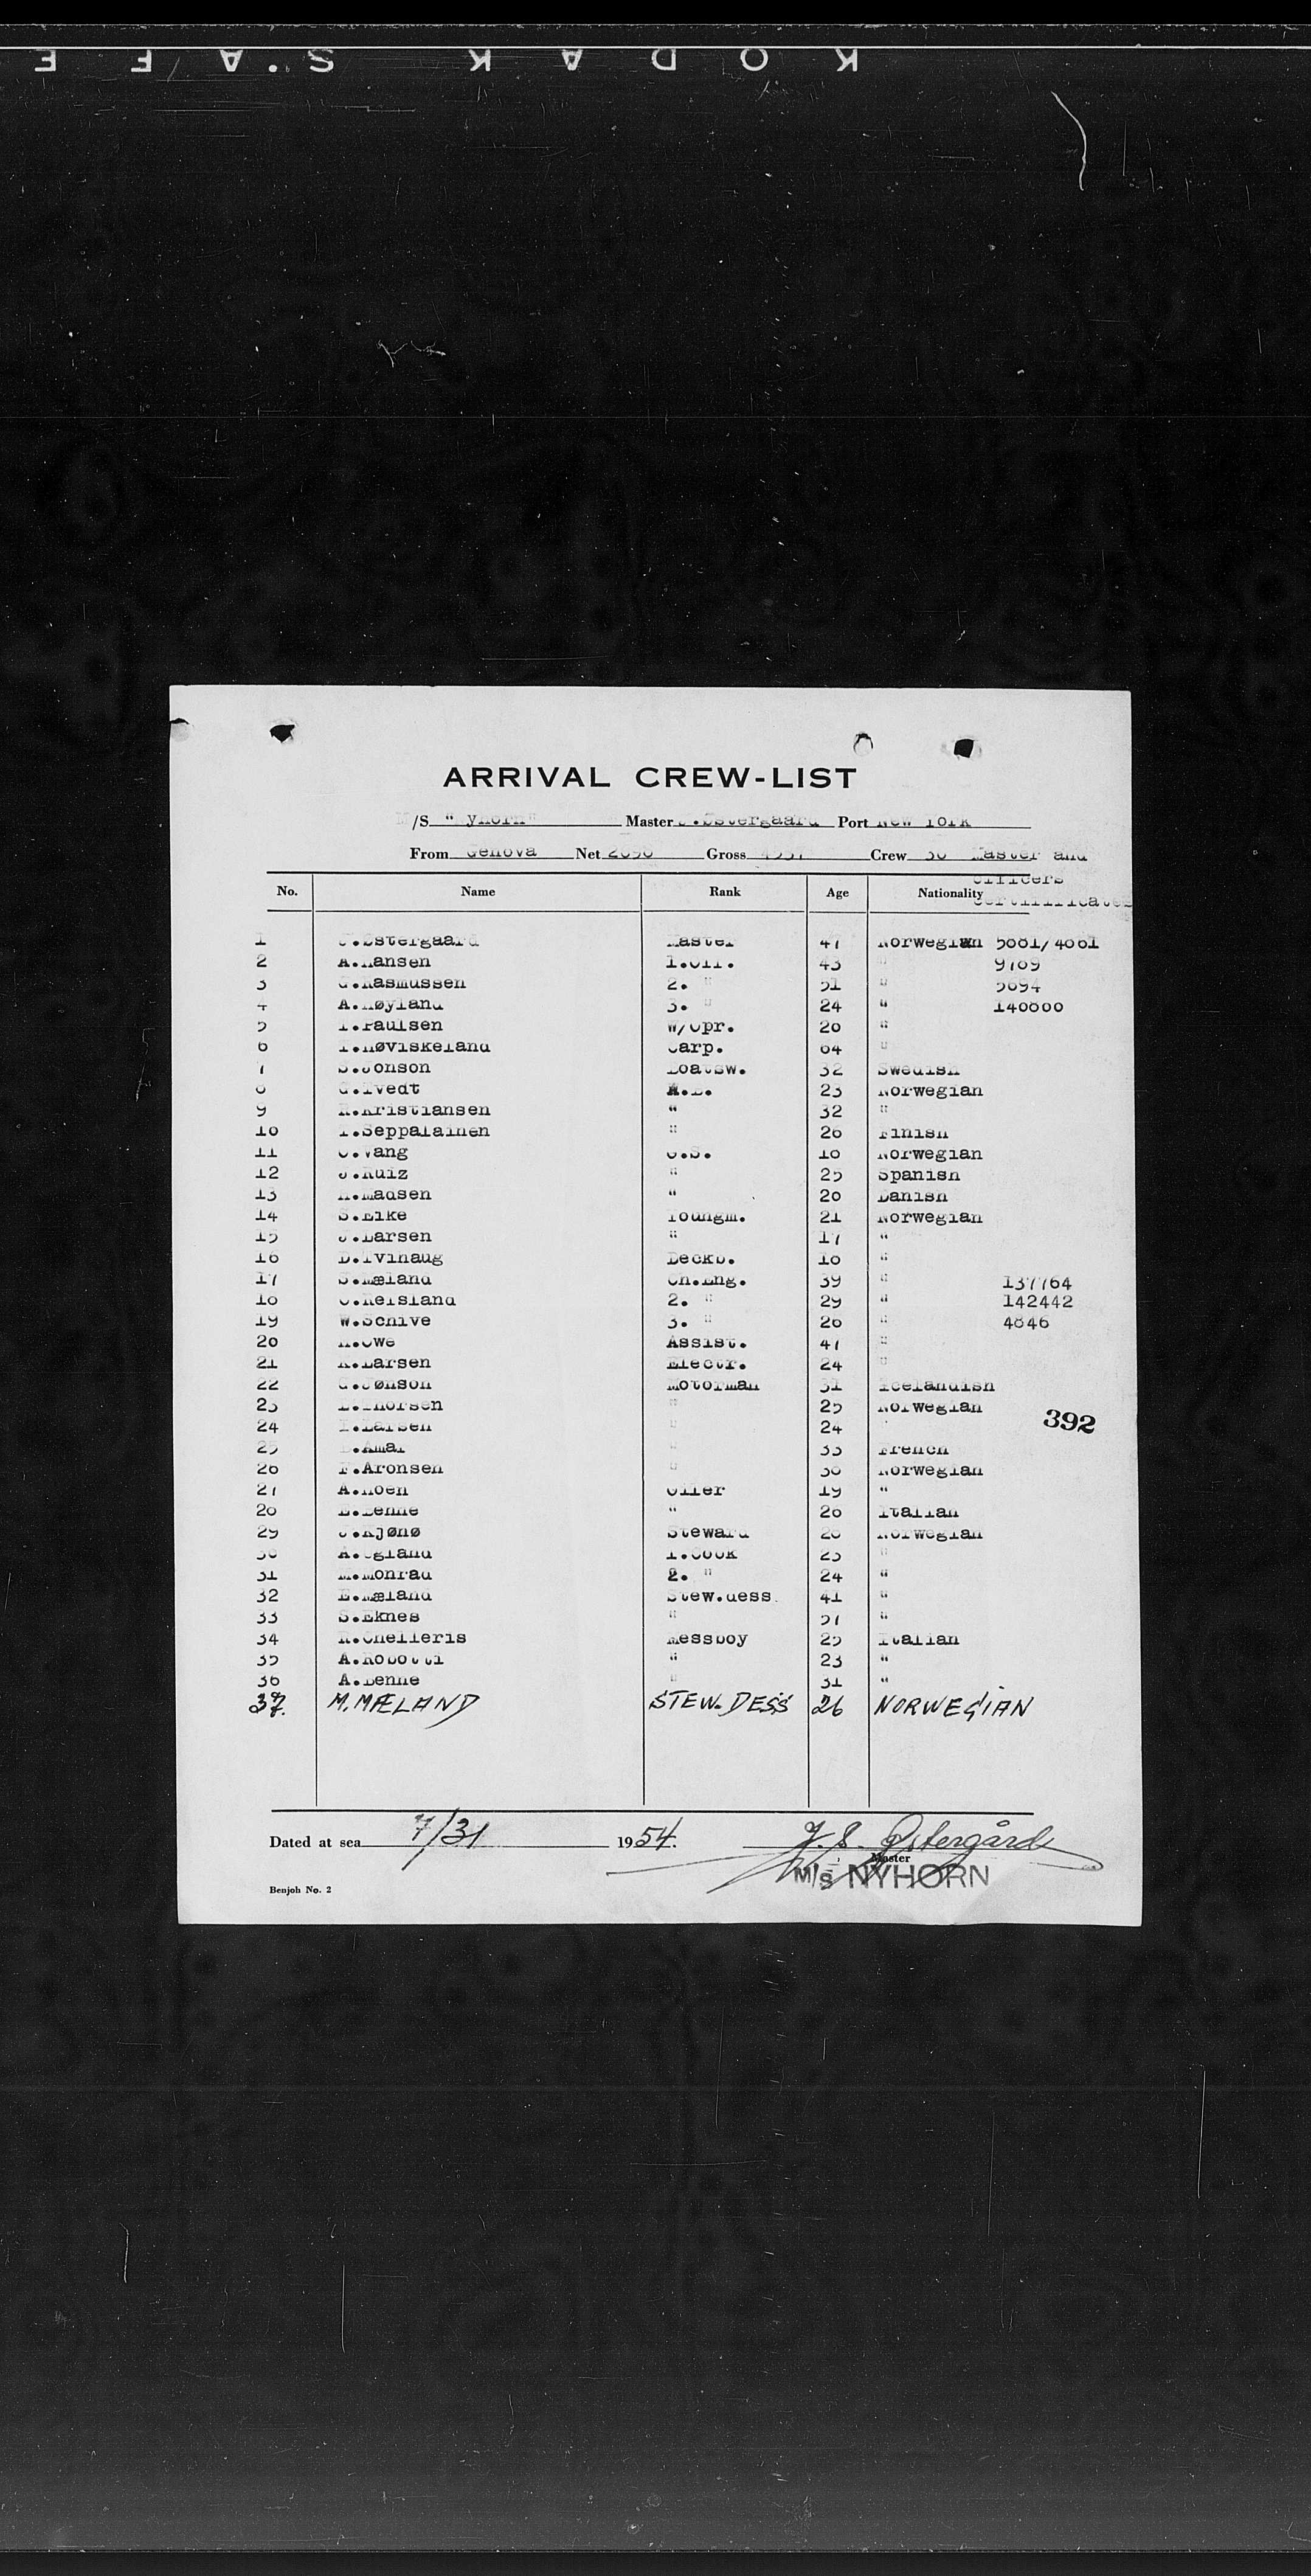 KODAK S.AFE
ARRIVAL CREW-LIST
M/S "Nyhorn" Master J.Østergaard Port New York
From Genova Net Gross Crew Master and
officers
No. Name Rank Age Nationality certifficates
1 J.Østergaard Master 47 Norwegian
2 A.Hansen 1.Off. 43 "
3 G.Rasmussen 2. " 51 "
4 A.Røyland 3. " 24 "
5 T.Paulsen W/Opr. "
6 Carp. "
7 S.Jonson Boatsw. 32 Swedish
8 G.Tvedt A.B. 23 Norwegian
9 R.Kristiansen " 32 "
10 T.Seppalainen " Finish
11 O.Vang O.S. Norwegian
12 J.Ruiz " 25 Spanish
13 Madsen " Danish
14 S.Eike Youngm. 21 Norwegian
15 J.Larsen " 17 "
16 Deckb. "
17 S.Mæland Ch.Eng. 39 " 137764
18 O.Reisland 2. " 29 " 142442
19 W.Schive 3. " " 4846
20 Assist. 47 "
21 K.Larsen Electr. 24 "
22 G.Jønson Motorman 31 Icelandish
23 Thorsen " 25 Norwegian
24 Larsen " 24
392
25 Amar " French
26 F.Aronsen " Norwegian
27 A.Moen Oiler 19 "
28 " Italian
29 J.Kjønø Steward Norwegian
30 A.Ogland 1.Cook "
31 M.Monrad 2. " 24 "
32 E.Mæland Stew.dess. 41 "
33 S.Eknes " "
34 R.Chelleris Messboy 25 Italian
35 A.Robotti " 23 "
36 A.Benne " 31 "
37. M.MÆLAND STEW.DESS 26 NORWEGIAN
Dated at sea 7/31 1954. J. S. Østergård
Master
M/S NYHORN
Benjoh No. 2